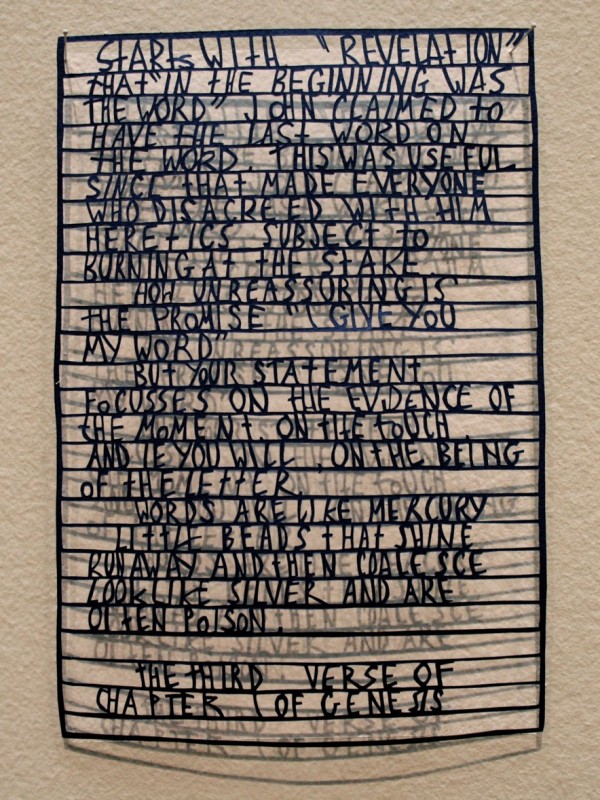 StARts WItH "REVELAtION"
tHAt "IN tHE BEGINNING WAS
THE WORD" JOHN CLAIMED to
HAVE tHE LASt WORD ON
tHE WORD. THIS WAS USEFUL
SINCE tHAt MADE EVERYONE
WHO DISAGREED WItH HIM
HEREtICS SUBJECt tO
BURNING At tHE StAKE.
HOW UNREASSURING IS
tHE PROMISE "I GIVE YOU
MY WORD"
BUt YOUR StAtEMENt
FoCUSSES ON tHE EVIDENCE OF
tHE MoMENt, ON tHE toUCH,
AND IF YOU WILL, ON tHE BEING
oF tHE LEttER.
WORDS ARE LIKE MERCURY
LIttLE BEADS tHAt SHINE
RUN AWAY AND tHEN COALESCE
LOOK LIKE SILVER AND ARE
OFtEN PoISON.
tHE tHIRD VERSE OF
CHAPtER I OF GENESIS